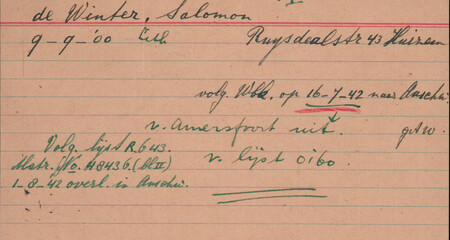 de Winter, Salomon
9-9-'00 Ruysdealstr 43 Huizen
volg. Wbk. op 16-7-42 naar Auschw.
v. Amersfoort uit. getw.
Volg. lijst R 643. v. lijst 0160.
Mstr. No. 48436. (bl II)
1-8-'42 overl. in Auschw.